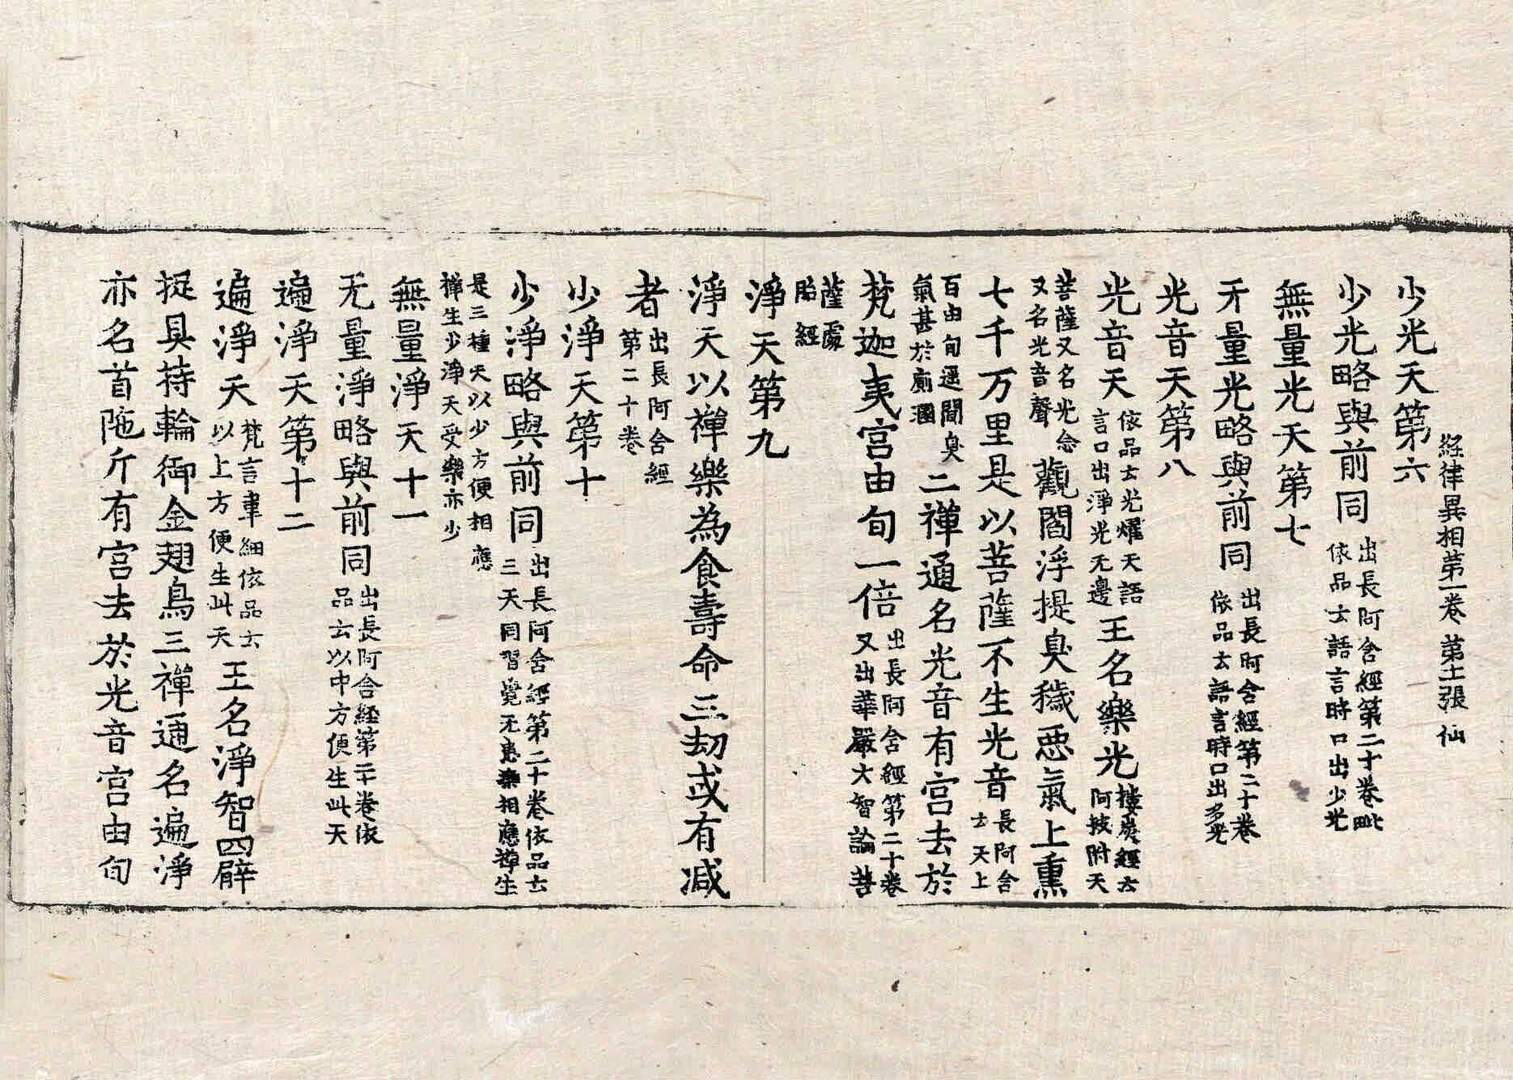 經律異相第一卷 第十一張 仙
少光天第六
少光略與前同出長阿含經第二十卷毗依品云語言時口出少光
無量光天第七
无量光略與前同出長阿含經第二十卷依品云語言時口出多光
光音天第八
光音天依品云光燿天語言口出淨光无邊王名樂光樓炭經云阿披附天
菩薩又名光念又名光音聲觀閻浮提臭穢惡氣上熏
七千万里是以菩薩不生光音長阿含云天上
百由旬遥聞臭氣甚於廁溷二禪通名光音有宫去於
梵迦夷宫由旬一倍出長阿含經第二十卷又出華嚴大智論菩
薩處胎經
淨天第九
淨天以禪樂為食壽命三劫或有減
者出長阿含經第二十卷
少淨天第十
少淨略與前同出長阿含經第二十卷依品云三天同習覺无患樂相應禪生
是三種天以少方便相應禪生少淨天受樂亦少
無量淨天十一
无量淨略與前同出長阿含經第二十卷依品云以中方便生此天
遍淨天第十二
遍淨天梵言羣細依品云以上方便生此天王名淨智四臂
捉具持輪御金翅鳥三禪通名遍淨
亦名首陁斤有宫去於光音宫由旬